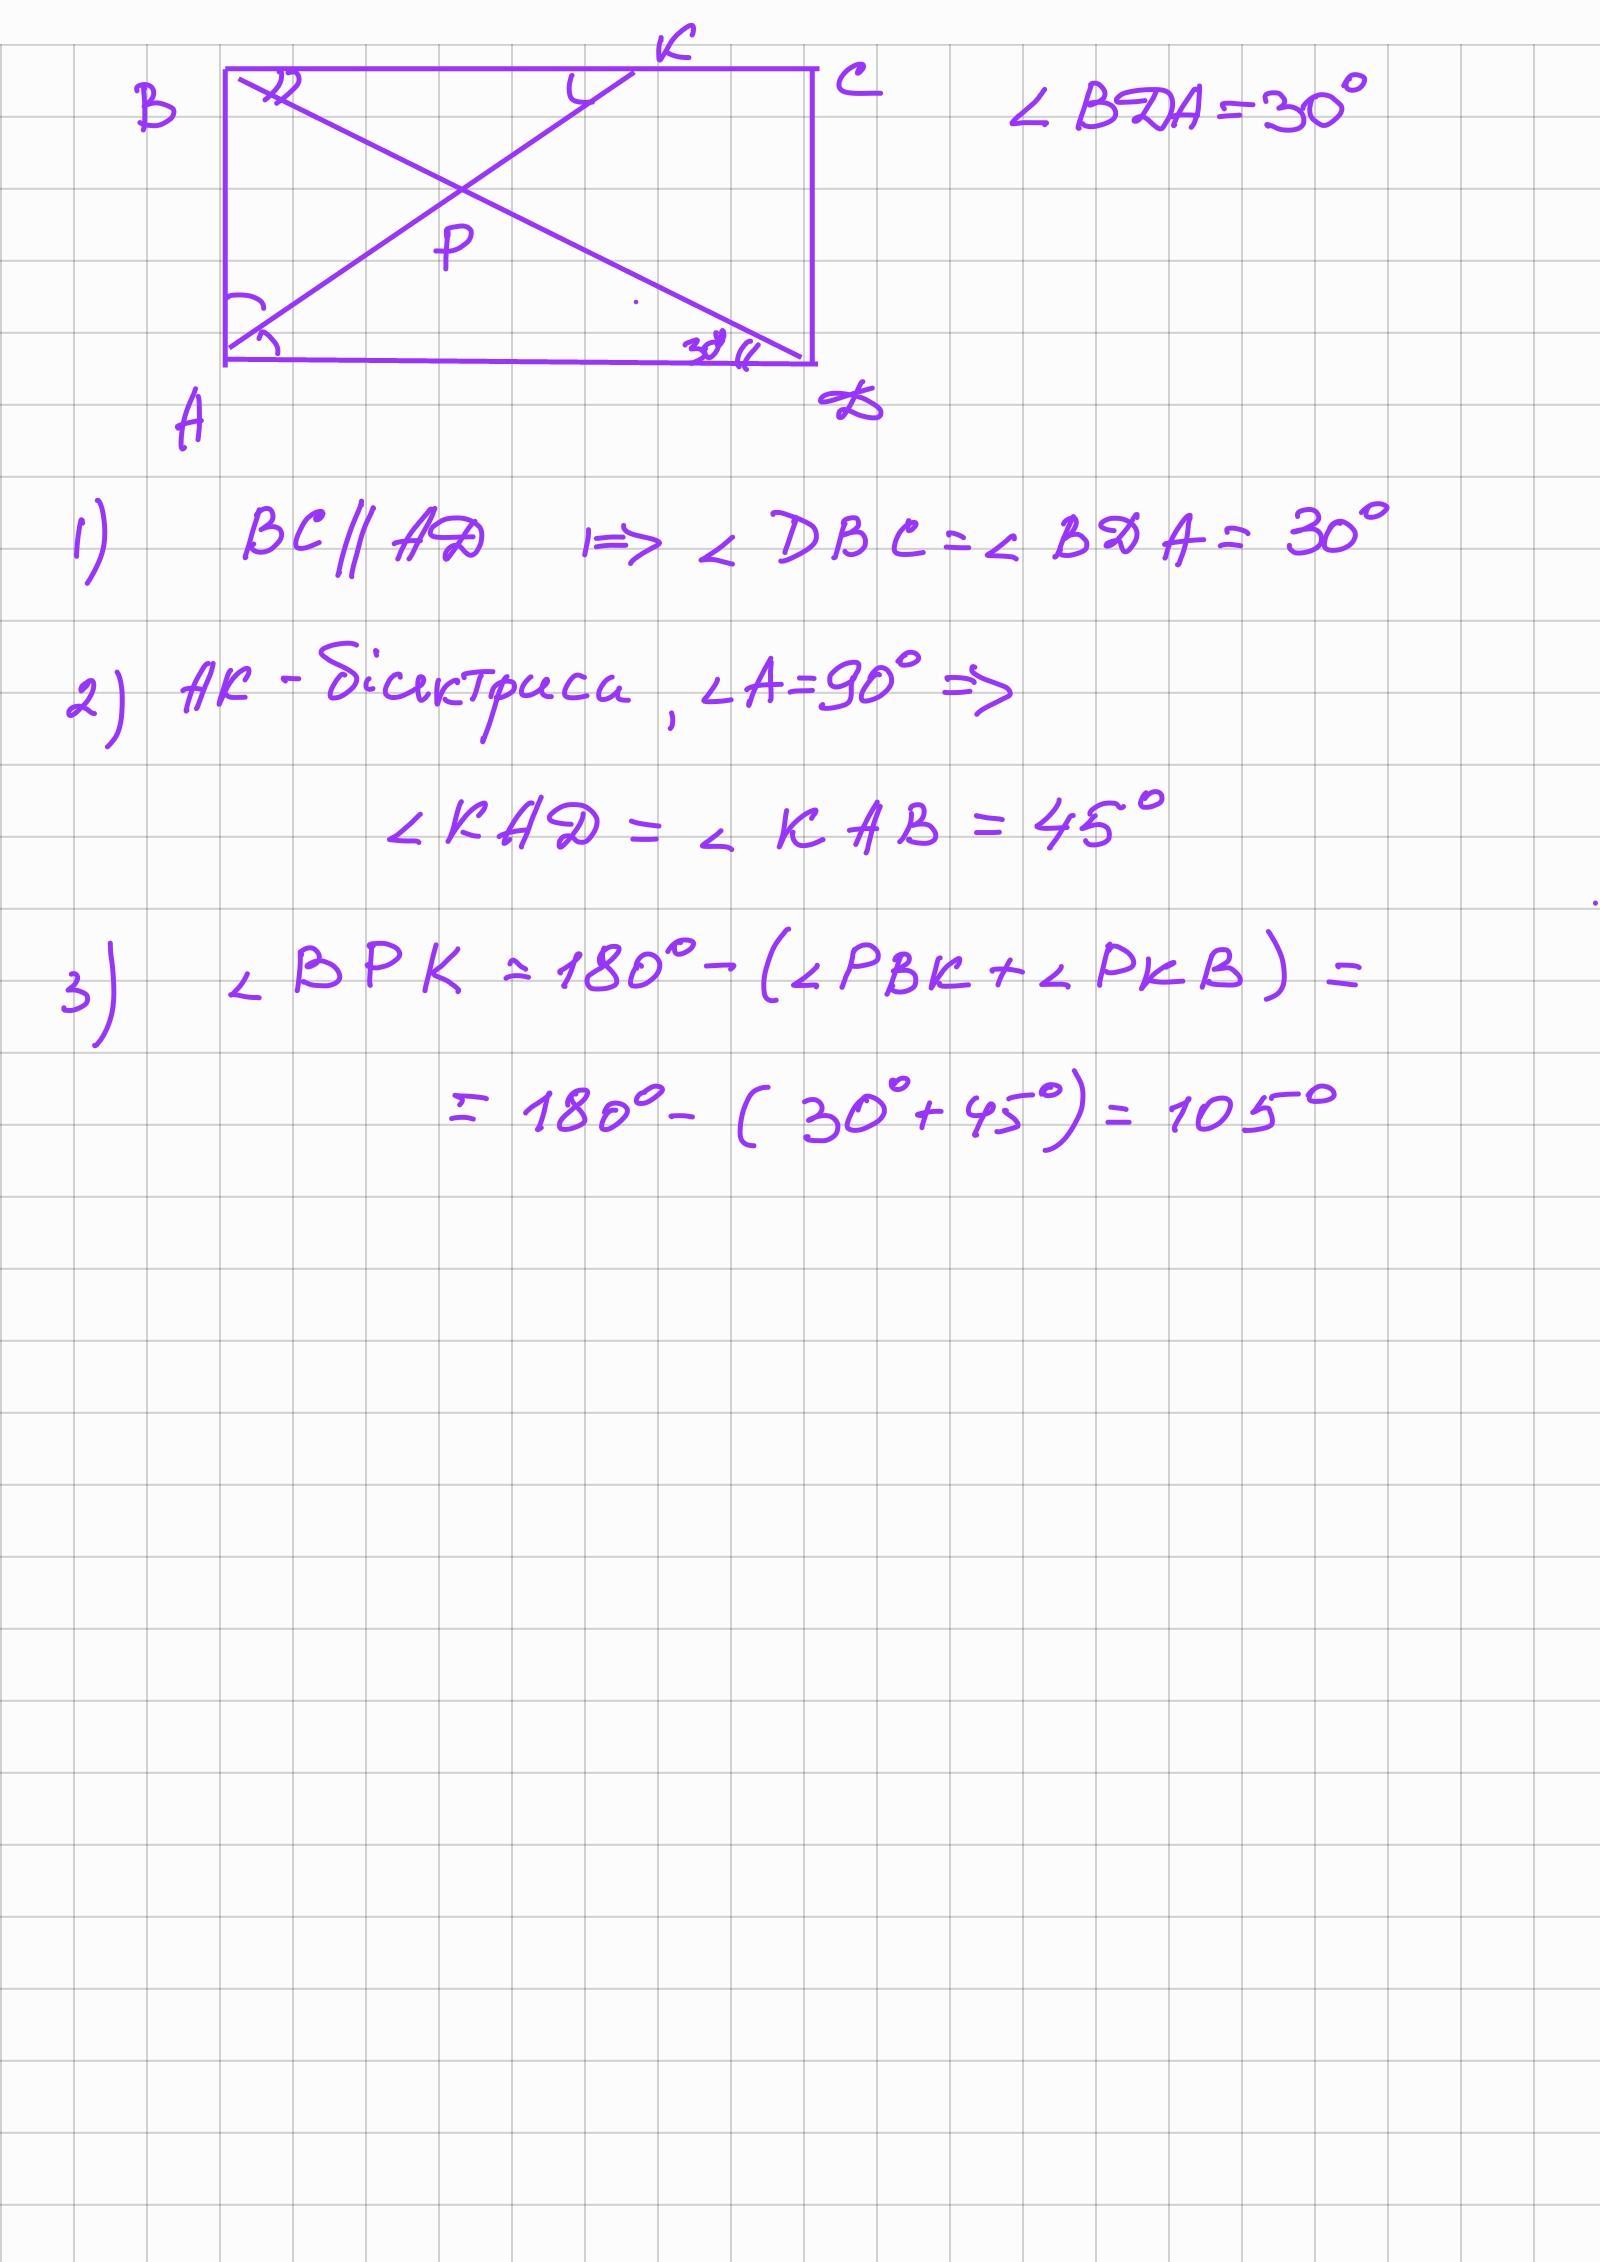 B
K
C
∠BDA=30°
P
30°
A
D
1) BC∥AD => ∠DBC=∠BDA=30°
2) AK - бісектриса, ∠A=90° =>
∠KAD = ∠KAB = 45°
3) ∠BPK = 180° - (∠PBK + ∠PKB) =
= 180° - (30° + 45°) = 105°